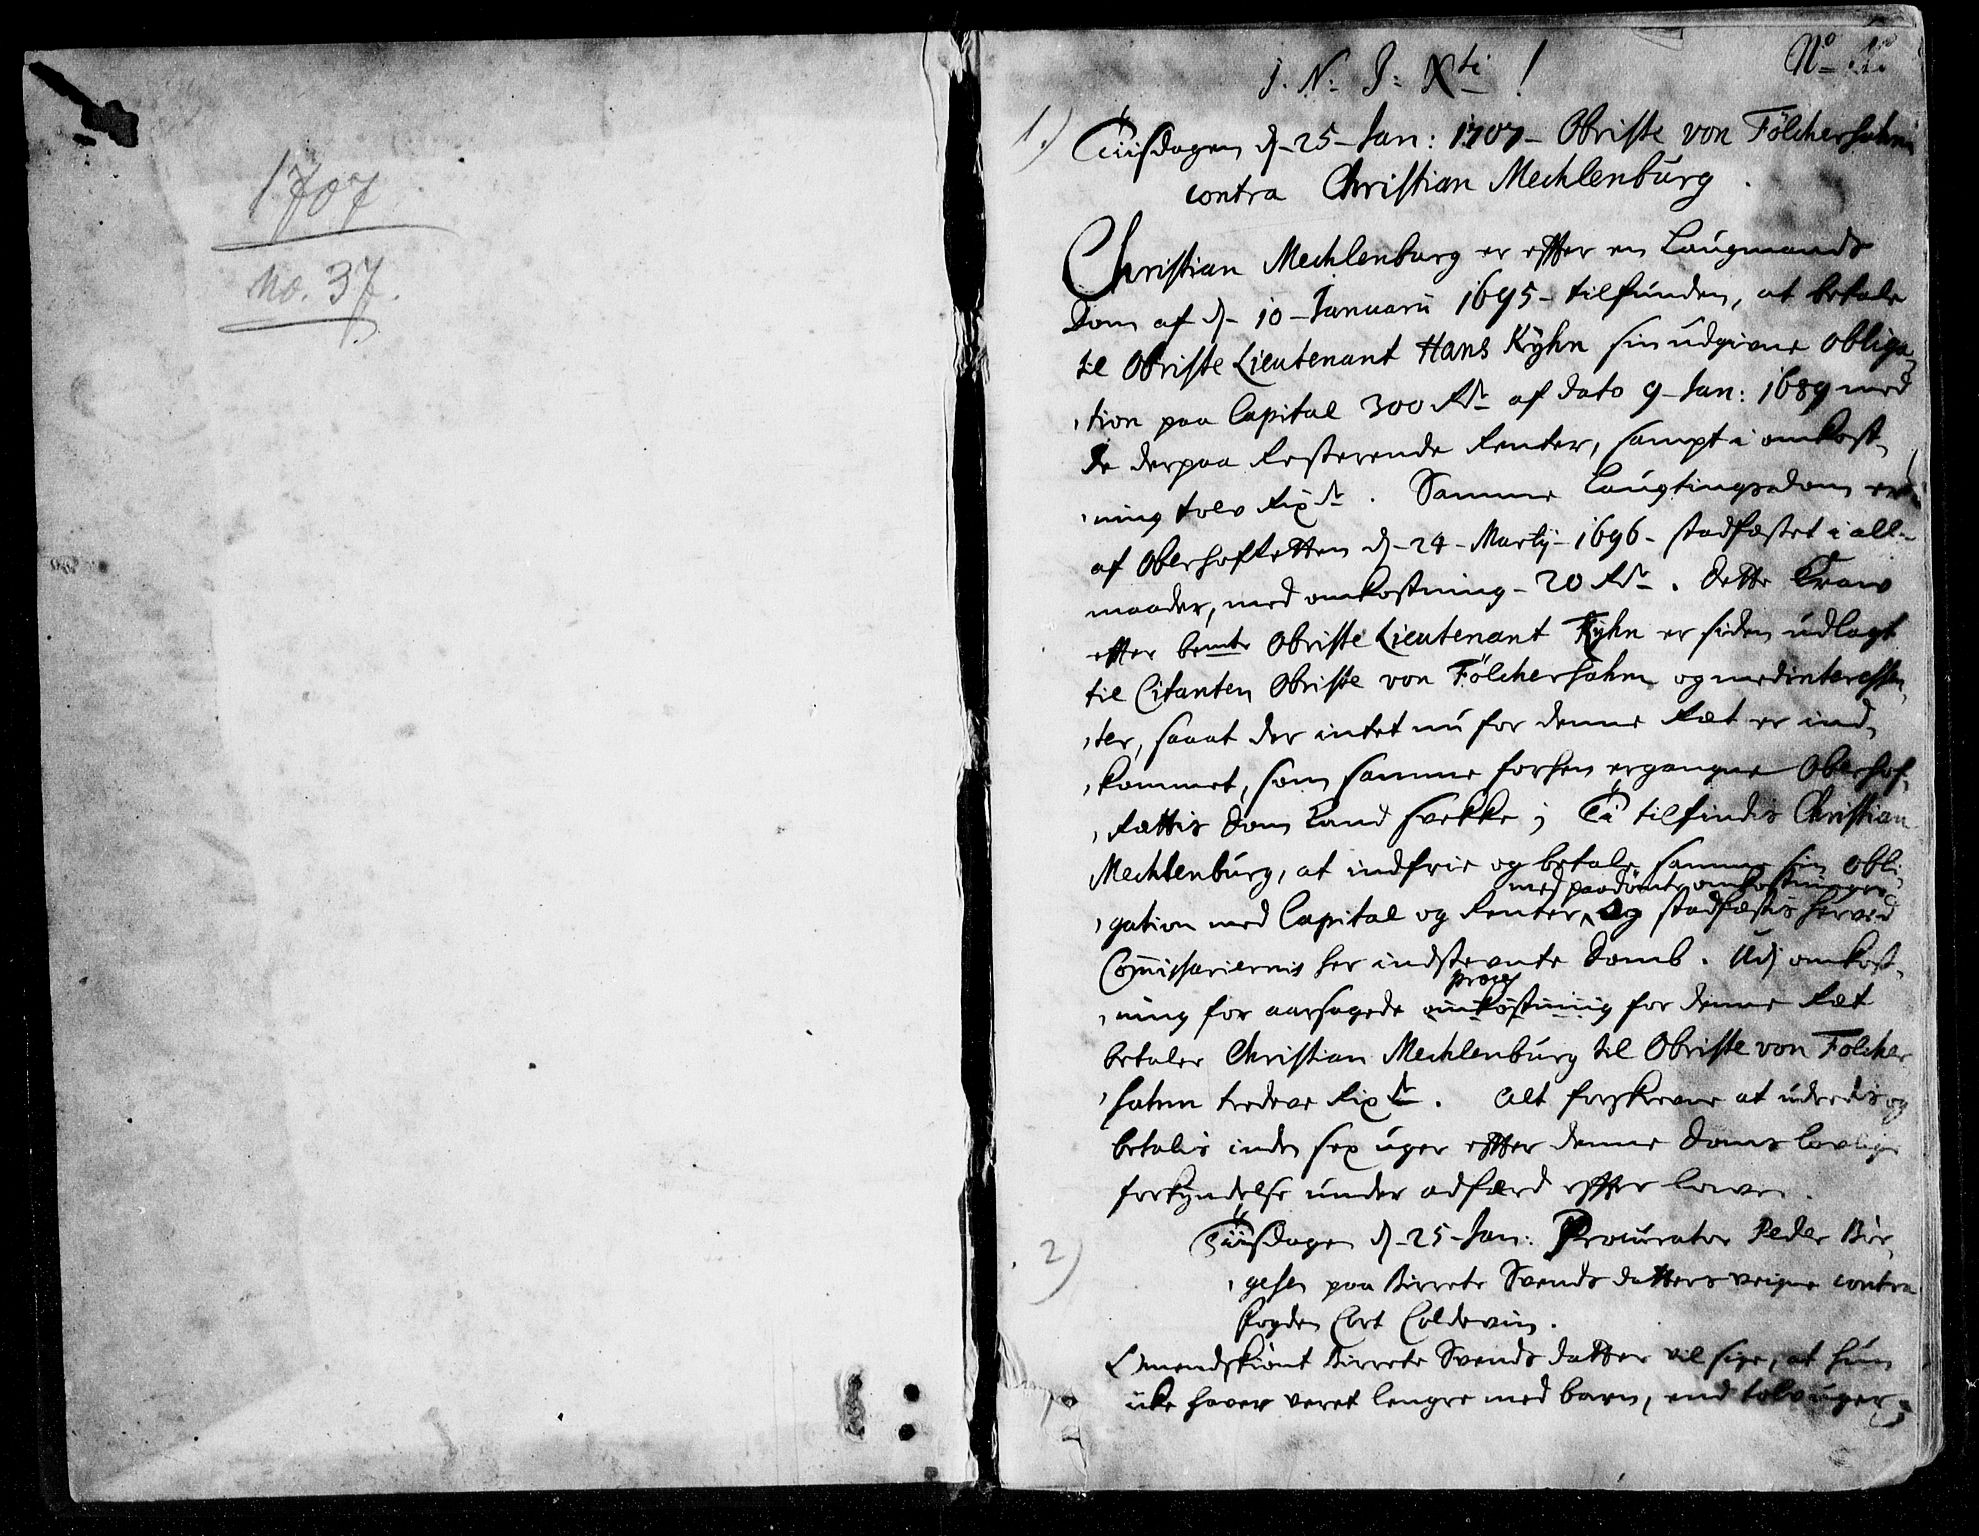 1707
No. 37.
J. N: J: Xti !
No
1.)
Tiisdagen d. 25 Jan: 1707 - Obriste von Fölchersahm
contra Christian Mechlenburg.
Christian Mechlenburg er effter en Laugmands
Dom af d. 10 Januarii 1695 tilfunden, at betale
til Obriste Lieutenant Hans Kyhn sin udgivne obliga
tion paa Capital 300 Rdr af dato 9 Jan: 1689 med
de derpaa Resterende Renter, sampt i omkost
ning tolv Rixdr. Samme Laugtingsdom er
af Oberhofretten d. 24 Martij 1696 stadfæstet i alle
maader, med omkostning 20 Rdr. Dette Krav
effter bemte Obriste Lieutenant Kyhn er siden udlagt
til Citanten Obriste von Fölchersahm og medinteressen
ter, saaat der intet nu for denne Ræt er ind
kommet, som samme forhen ergangne Oberhof
Rættis Dom kand svekke; Ti tilfindis Christian
Mechlenburg, at indfrie og betale samme sin obli
med paadömte omkostninger
gation med Capital og Renter, og stadfæstis herved
Commissariernis her indstevnte Domb. Udi omkost
proces
ning for aarsagede omkostning for denne Ræt
betaler Christian Mechlenburg til Obriste von Fölcher
sahm tredeve Rixdr. Alt forskrevne at udredis og
betalis inden sex uger effter denne Doms lovlige
forkyndelse under adfærd effter loven.
2)
Tiisdagen d. 25 Jan: Procurator Peder Bör
gesen paa Birrete Svends datters veigne contra
fogden Cort Coldevin.
Omendskiönt Birrete Svends datter vil sige, at hun
icke haver veret lengre med barn, end tolv uger